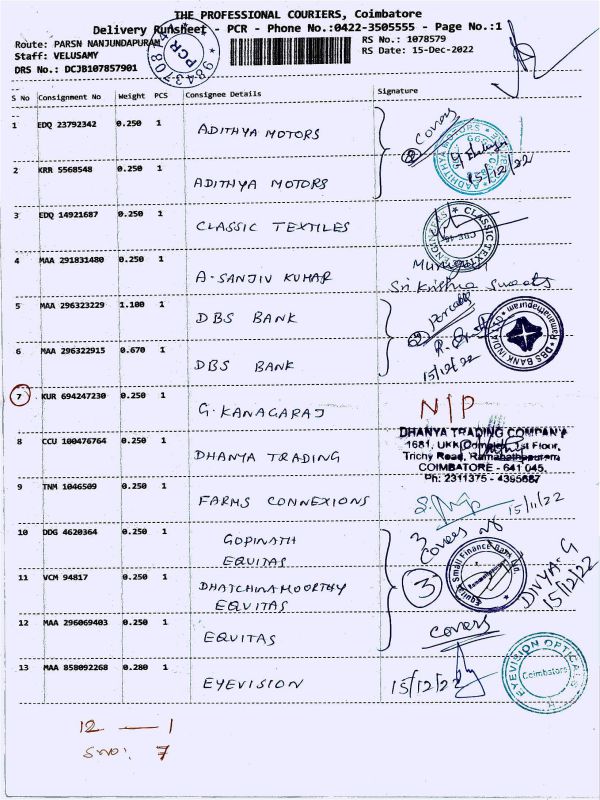 THE PROFESSIONAL COURIERS, Coimbatore
Delivery Runsheet - PCR - Phone No.:0422-3505555 - Page No.:1
Route: PARSN NANJUNDAPURAM
RS No.: 1078579
Staff: VELUSAMY
RS Date: 15-Dec-2022
DRS No.: DCJB107857901
PCR
S No Consignment No Weight PCS Consignee Details Signature
1 EDQ 23792342 0.250 1 ADITHYA MOTORS
② Covers
15/12/22
2 KRR 5568548 0.250 1 ADITHYA MOTORS
3 EDQ 14921687 0.250 1 CLASSIC TEXTILES
4 MAA 291831480 0.250 1 A. SANJIV KUMAR
Sri Krishna Sweets
5 MAA 296323229 1.100 1 DBS BANK
DBS BANK INDIA LTD * Ramanathapuram
6 MAA 296322915 0.670 1 DBS BANK
15/12/22
7 KUR 694247230 0.250 1 G. KANAGARAJ N/P
8 CCU 100476764 0.250 1 DHANYA TRADING
DHANYA TRADING COMPANY
1681, UKK Complex, 1st Floor,
Trichy Road, Ramanathapuram
COIMBATORE - 641 045.
Ph: 2311375 - 4395687
9 TNM 1046509 0.250 1 FARMS CONNEXIONS
15/11/22
10 DDG 4620364 0.250 1 GOPINATH
EQUITAS
3
Covers
Equitas Small Finance Bank Ltd.
11 VCM 94817 0.250 1 DHATCHINAMOORTHY
EQUITAS
3
DIVYA. G
15/12/22
12 MAA 296069403 0.250 1 EQUITAS
Covers
13 MAA 858092268 0.280 1 EYEVISION
15/12/22
EYEVISION OPTICALS
Coimbatore
12 — 1
S.no: 7